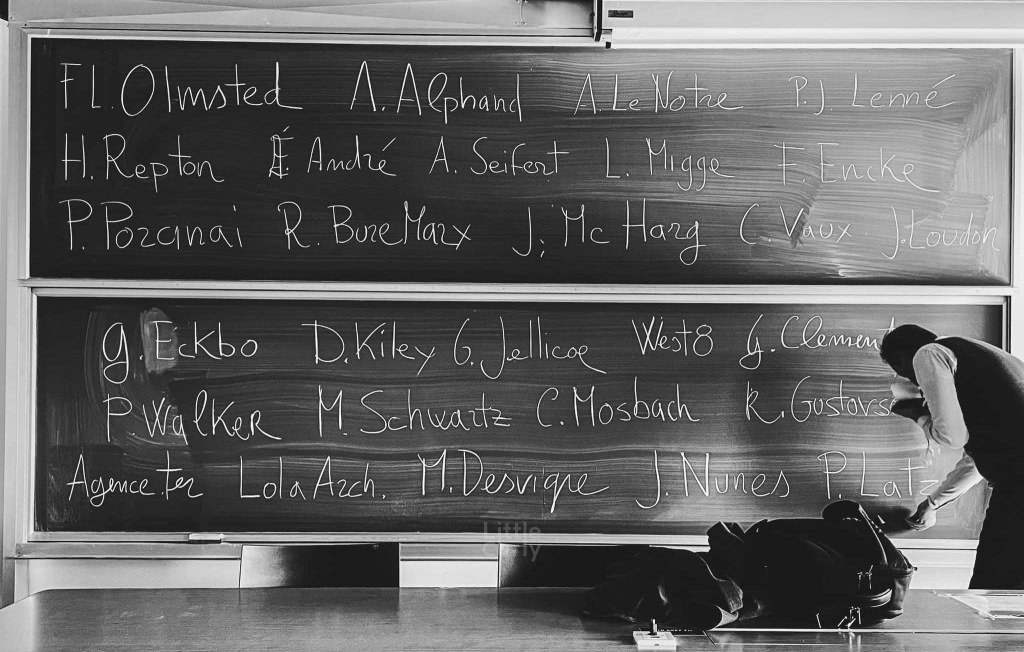 F L. Olmsted A. Alphand A. Le Notre P. J. Lenné
H. Repton É André A. Seifert L. Migge F. Encke
P. Porcinai R. Bure Marx J. Mc Harg C. Vaux J. Loudon
G. Eckbo D. Kiley G. Jellicoe West8 G. Clemen
P. Walker M. Schwartz C. Mosbach K. Gustavs
Agence.ter Lola Arch. M. Desvigne J. Nunes P. Latz
Little